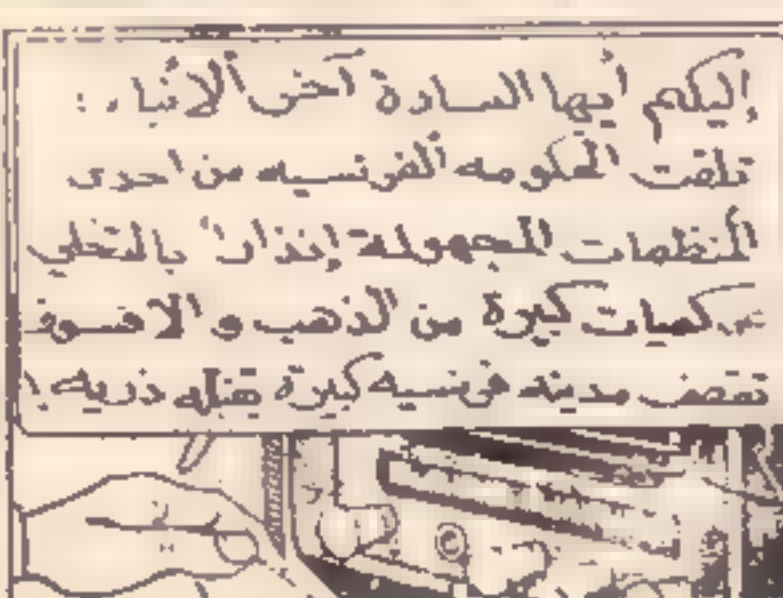 إليكم أيها السادة آخر ألأنباء :
تلقت الحكومه ألفرنسيه من احدى
المنظمات المجهولة إنذارا بالتخلي
عن كميات كبيرة من الذهب و الا فسوف
تقصف مدينه فرنسيه كبيرة بقنبله ذريه !